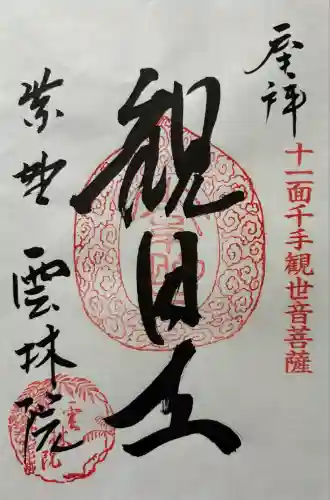 奉拝
十一面千手観世音菩薩
観日工
紫野 雲林院
雲
院